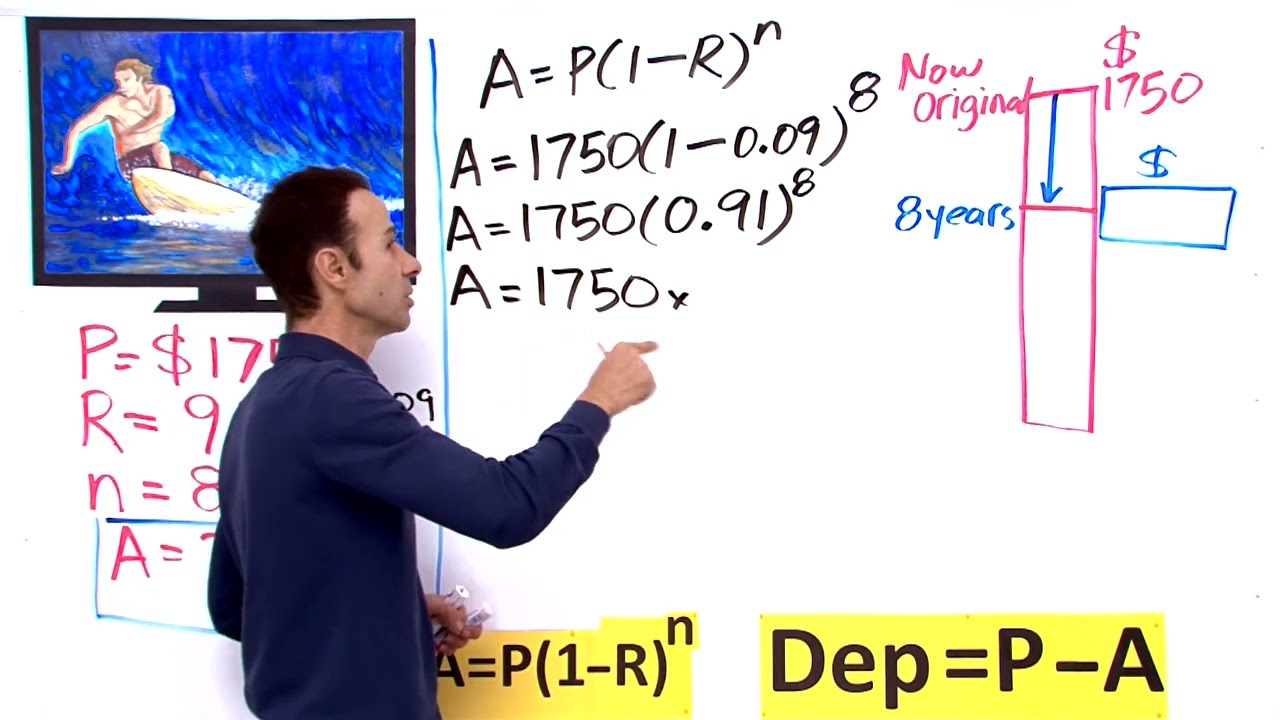 A=P(1-R)^n
A=1750(1-0.09)^8
A=1750(0.91)^8
A=1750×
Now
Original
$
1750
8 years
$
P=$17
R=9
09
n=8
A=
A=P(1-R)^n
Dep=P-A